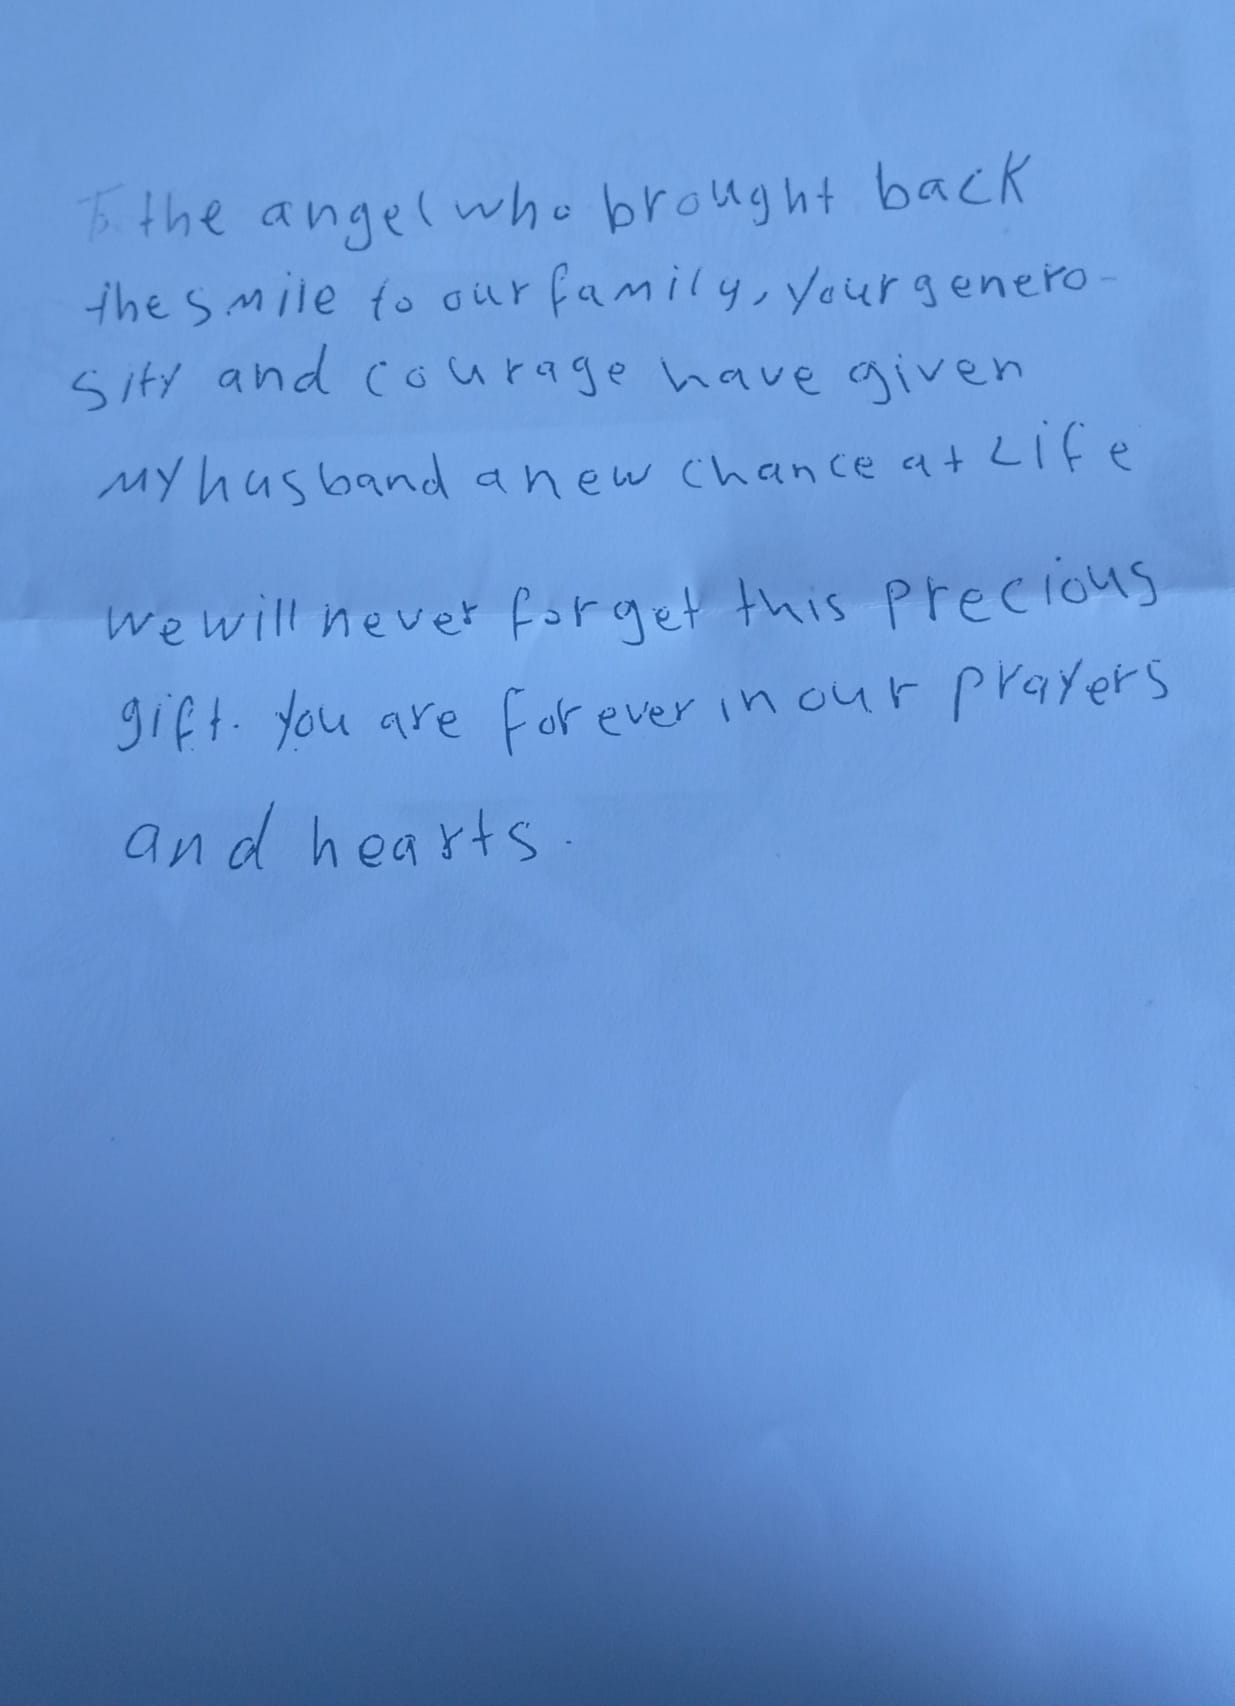 To the angel who brought back
the smile to our family, your genero-
sity and courage have given
My husband a new chance at Life
We will never forget this precious
gift. You are forever in our prayers
and hearts.